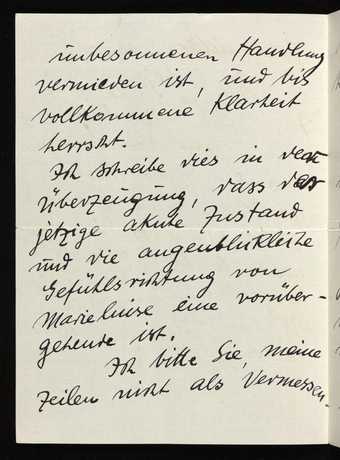 unbesonnenen Handlung
vermieden ist, und bis
vollkommene Klarheit
herrscht.
Ich schreibe dies in der
Überzeugung, dass der
jetzige akute Zustand
und die augenblickliche
Gefühlsrichtung von
Marieluise eine vorüber-
gehende ist.
Ich bitte Sie, meine
Zeilen nicht als Vermessen-